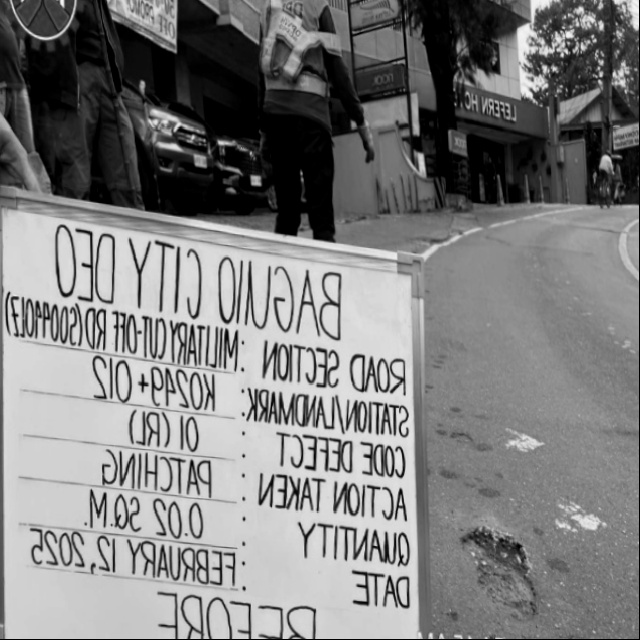 BAGUIO CITY DEO
ROAD SECTION : MILITARY CUT-OFF RD (S00440LZ)
STATION/LANDMARK : K0249+012
CODE DEFECT : 01 (RL)
ACTION TAKEN : PATCHING
QUANTITY : 0.02 SQ.M.
DATE : FEBRUARY 12, 2025
BEFORE
LEFERN HO